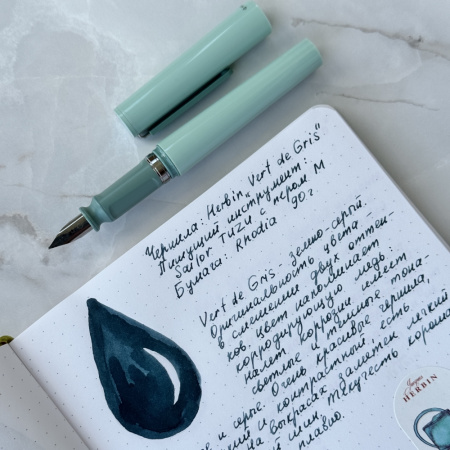 Чернила: Herbin „Vert de Gris"
Пишущий инструмент:
Sailor TUZU с пером M
Бумага: Rhodia 90г.
Vert de Gris зелено-серый.
Оригинальность цвета -
в смешении двух оттен-
ков. Цвет напоминает
корродирующую медь.
налет коррозии имеет
светлые и темные тона
и серые. Очень красивые чернила,
и контрастной, есть
на выкрасах заметен легкий
текучесть хорошая
плавно.
Jacques
HERBIN